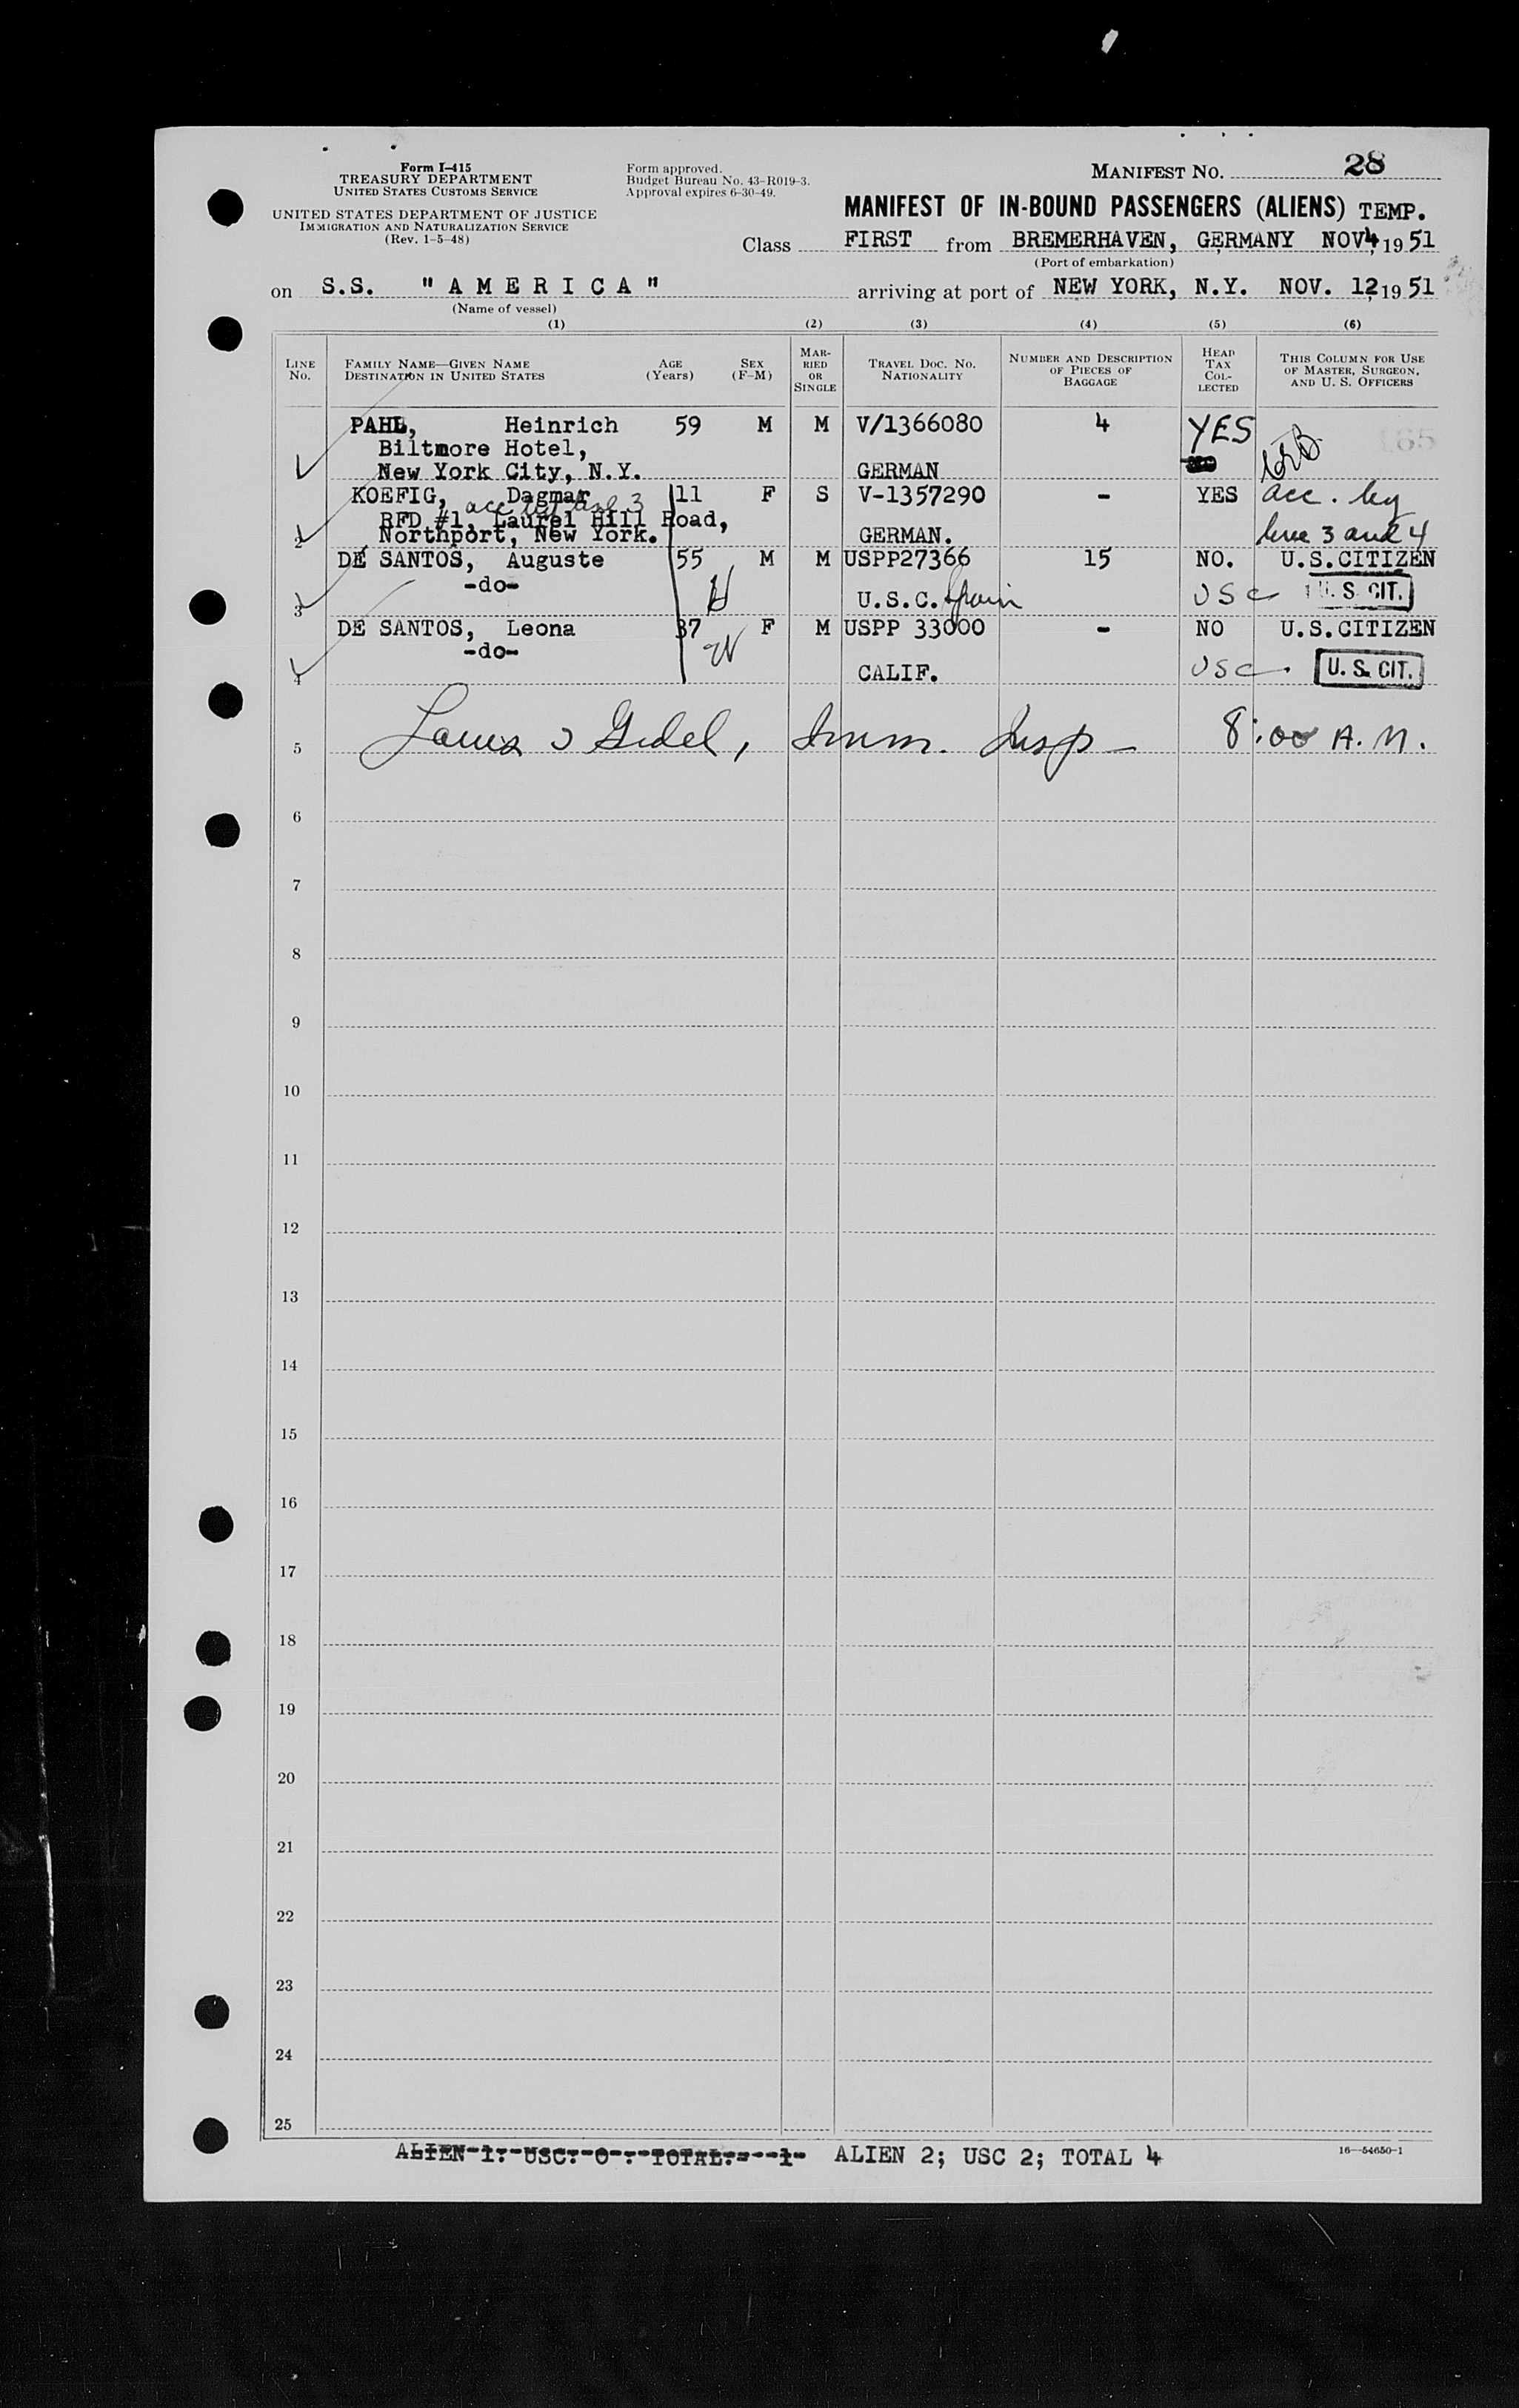 Form I-415
TREASURY DEPARTMENT
UNITED STATES CUSTOMS SERVICE
UNITED STATES DEPARTMENT OF JUSTICE
IMMIGRATION AND NATURALIZATION SERVICE
(Rev. 1-5-48)
Form approved.
Budget Bureau No. 43-R019-3.
Approval expires 6-30-49.
MANIFEST NO. 28
MANIFEST OF IN-BOUND PASSENGERS (ALIENS) TEMP.
Class FIRST from BREMERHAVEN, GERMANY NOV 4, 1951
(Port of embarkation)
on S.S. "AMERICA" arriving at port of NEW YORK, N.Y. NOV. 12, 1951
(Name of vessel)
(1) (2) (3) (4) (5) (6)
LINE NO. FAMILY NAME—GIVEN NAME DESTINATION IN UNITED STATES AGE (Years) SEX (F-M) MARRIED OR SINGLE TRAVEL DOC. NO. NATIONALITY NUMBER AND DESCRIPTION OF PIECES OF BAGGAGE HEAD TAX COLLECTED THIS COLUMN FOR USE OF MASTER, SURGEON, AND U. S. OFFICERS
PAHL, Heinrich 59 M M V/1366080 4 YES
Biltmore Hotel,
New York City, N.Y. GERMAN
KOEFIG, Dagmar 11 F S V-1357290 - YES acc. by
RFD #1, Laurel Hill Road,
2 Northport, New York. GERMAN. line 3 and 4
DE SANTOS, Auguste 55 M M USPP27366 15 NO. U.S.CITIZEN
3 -do- H U.S.C. Spain USC U. S. CIT.
DE SANTOS, Leona 37 F M USPP 33000 - NO U.S.CITIZEN
-do- W
4 CALIF. USC. U. S. CIT.
5 Imm. Insp 8:00 A.M.
6
7
8
9
10
11
12
13
14
15
16
17
18
19
20
21
22
23
24
25
ALIEN-1.-USC.-0-.-TOTAL.---1- ALIEN 2; USC 2; TOTAL 4
16—54650-1